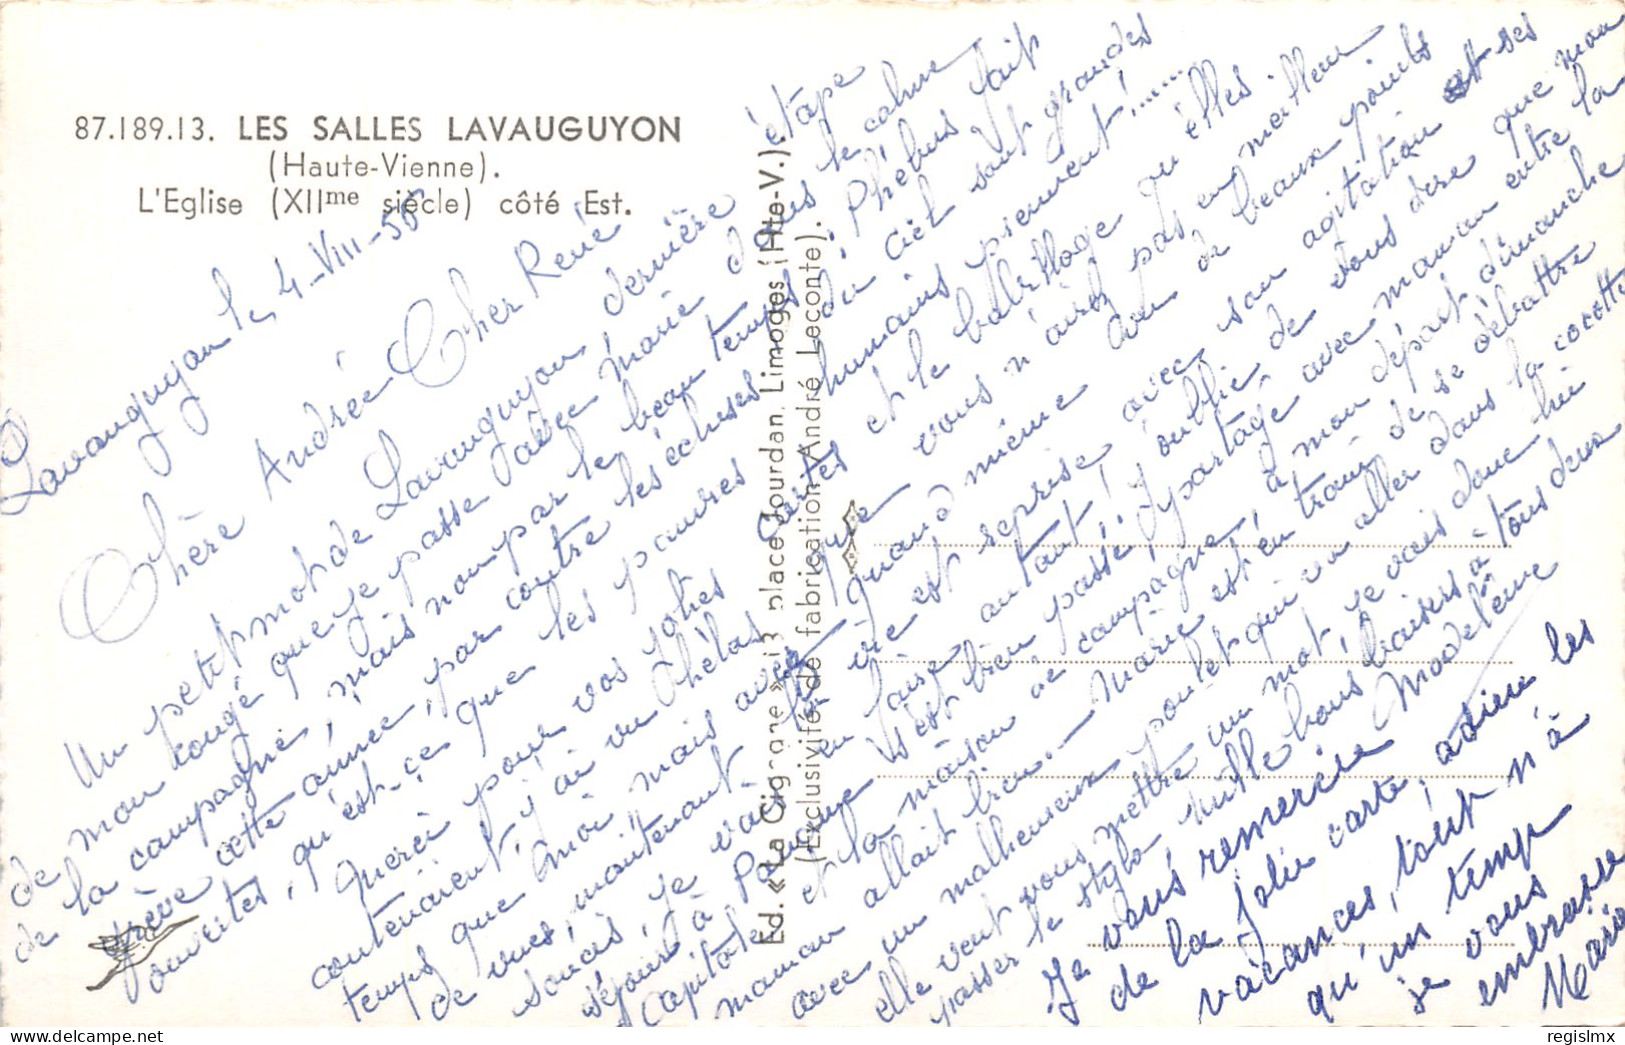 87.189.13. LES SALLES LAVAUGUYON
(Haute-Vienne).
L'Eglise (XIIme siècle) côté Est.
Ed. « La Cigogne » 13 place Jourdan, Limoges (Hte-V.).
(Exclusivité de fabrication André Leconte).
Lavauguyon le, 4-VIII-55
Chère Andrée Cher René
Un petit mot de Lavauguyon, dernière étape
de mon congé que je passe avec Marie dans le calme
de la campagne, mais non par le beau temps, Phébus fait
grève cette année, par contre les écluses du ciel sont grandes
ouvertes, qu'est-ce que les pauvres humains prennent!......
Merci pour vos jolies cartes et le babillage qu'elles
contenaient, j'ai vu hélas que vous n'aviez pas un meilleur
temps que moi mais avez quand même de beaux points
de vues, maintenant la vie est reprise avec son agitation et ses
soucis, je vais en faire autant, j'oublie de vous dire que mon
séjour à Panome s'est bien passé, partagé avec maman entre la
capitale et la maison de campagne, à mon départ dimanche
maman allait bien. Marie est en train de se débattre
avec un malheureux poulet qui va aller dans la cocotte
elle veut vous mettre un mot, je vais donc lui
passer le stylo Mille bons baisers à tous deux
Madeleine
Je vous remercie
de la jolie carte, adieu les
vacances, tout n'a
qu'un temps
je vous
embrasse
Marie
regislmx